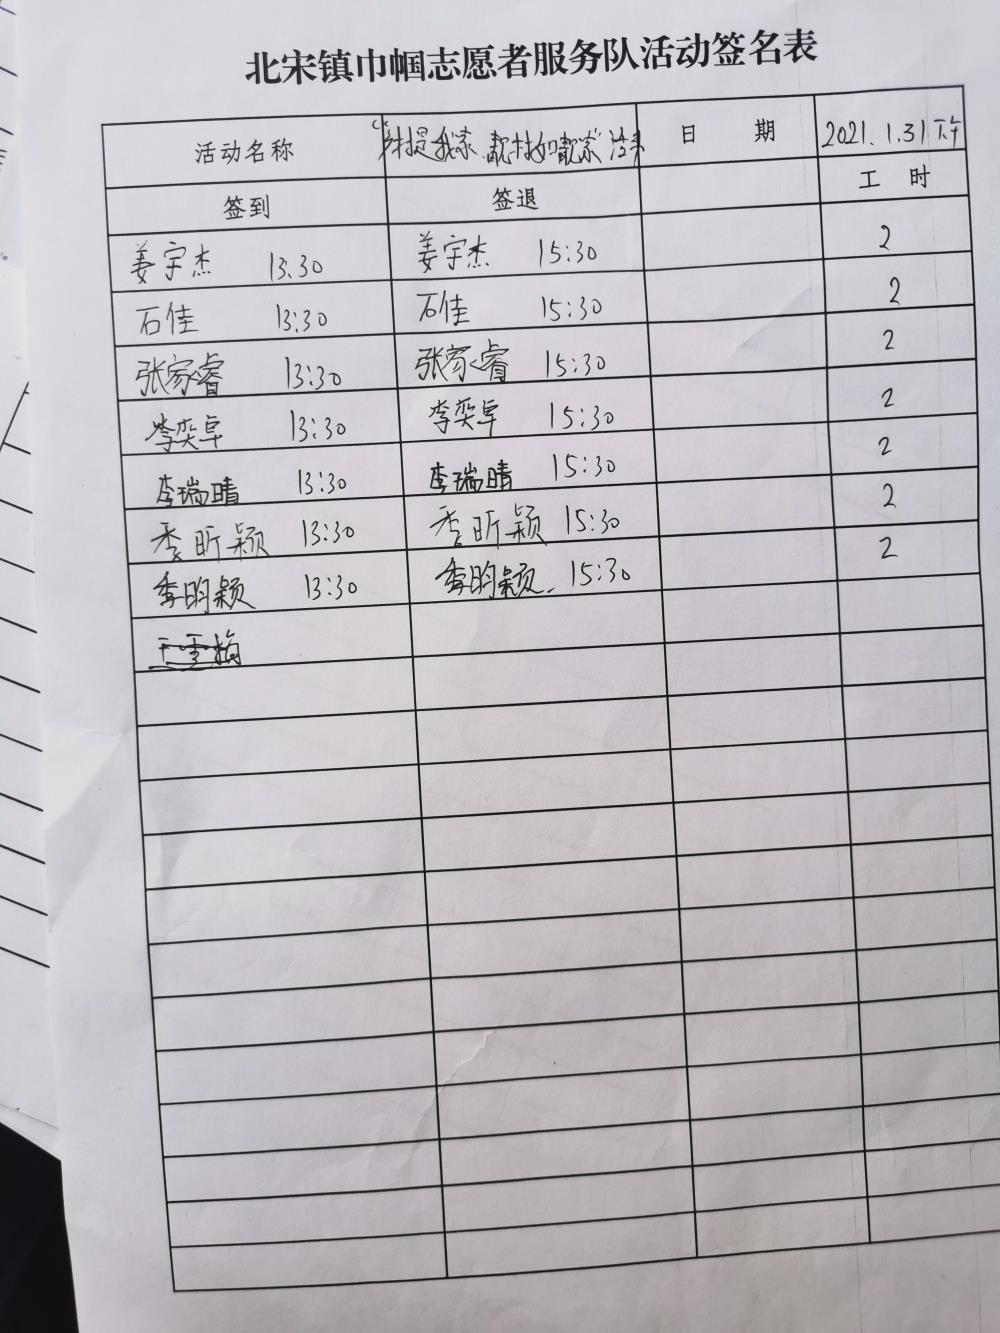 北宋镇巾帼志愿者服务队活动签名表
活动名称 "村是我家 靓村如靓家"活动 日 期 2021.1.31 下午
签到 签退 工 时
姜宇杰 13:30 姜宇杰 15:30 2
石佳 13:30 石佳 15:30 2
张家睿 13:30 张家睿 15:30 2
李奕卓 13:30 李奕卓 15:30 2
李瑞晴 13:30 李瑞晴 15:30 2
季昕颖 13:30 季昕颖 15:30 2
季昀颖 13:30 季昀颖 15:30 2